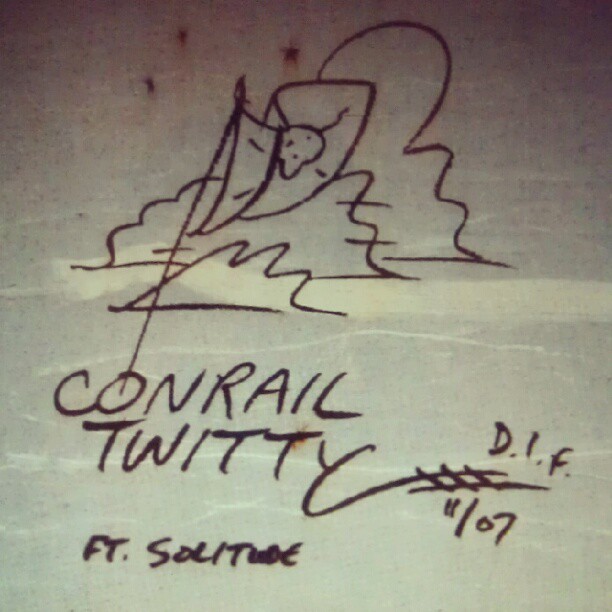 CONRAIL
TWITTY
D.I.F.
11/07
FT. SOLITUDE